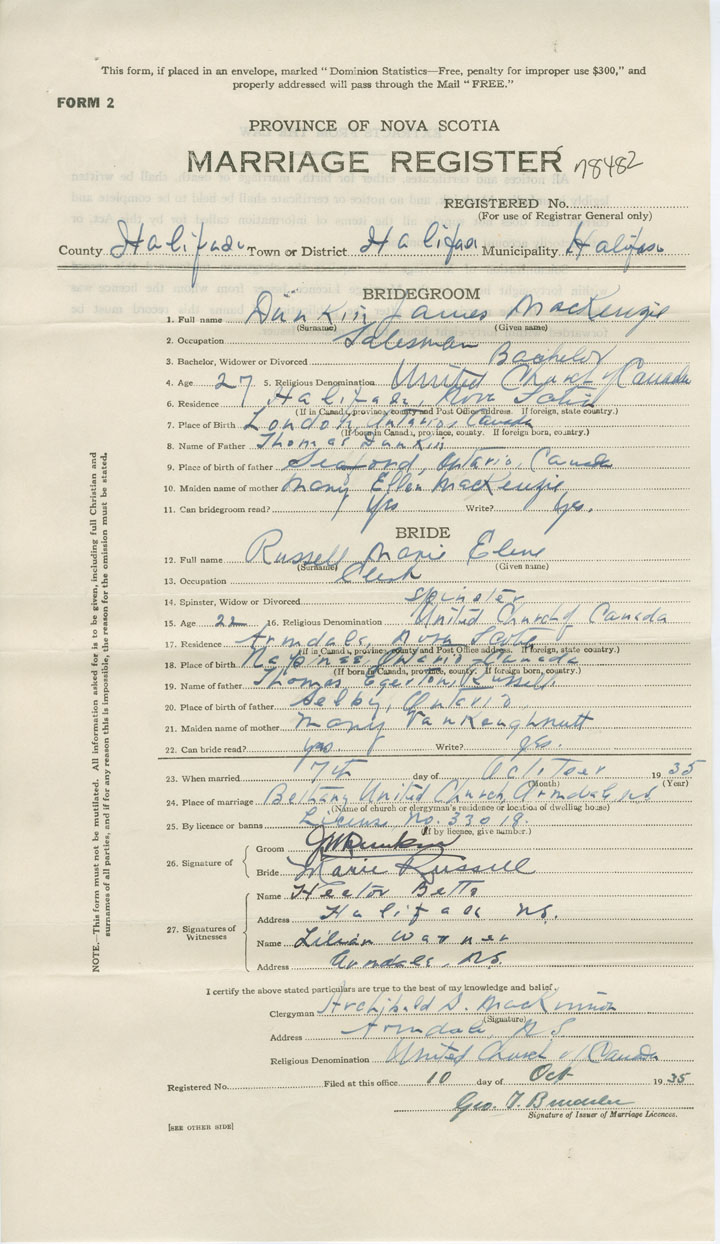 This form, if placed in an envelope, marked "Dominion Statistics—Free, penalty for improper use $300," and
properly addressed will pass through the Mail "FREE."
FORM 2
PROVINCE OF NOVA SCOTIA
MARRIAGE REGISTER 78482
REGISTERED No.
(For use of Registrar General only)
County Halifax Town or District Halifax Municipality Halifax
BRIDEGROOM
1. Full name Dunkin James MacKenzie
(Surname) (Given name)
2. Occupation Salesman
3. Bachelor, Widower or Divorced Bachelor
4. Age 27 5. Religious Denomination United Church of Canada
6. Residence Halifax, Nova Scotia
(If in Canada, province, county and Post Office address. If foreign, state country.)
7. Place of Birth London, Ontario, Canada
(If born in Canada, province, county. If foreign born, country.)
8. Name of Father Thomas Dunkin
9. Place of birth of father Ontario, Canada
10. Maiden name of mother Mary Ellen MacKenzie
11. Can bridegroom read? Yes Write? Yes.
BRIDE
12. Full name Russell Marie Elene
(Surname) (Given name)
13. Occupation Clerk
14. Spinster, Widow or Divorced Spinster
15. Age 22 16. Religious Denomination United Church of Canada
17. Residence Armdale, Nova Scotia
(If in Canada, province, county and Post Office address. If foreign, state country.)
18. Place of birth Napinee, Ontario Canada
(If born in Canada, province, county. If foreign born, country.)
19. Name of father Thomas Egerton Russell
20. Place of birth of father Selby, Ontario
21. Maiden name of mother Mary VanKoughnutt
22. Can bride read? yes. Write? yes.
23. When married 7th day of October 1935
(Month) (Year)
24. Place of marriage Bethany United Church, Armdale NS
(Name of church or clergyman's residence or location of dwelling house)
25. By licence or banns License No. 33018
(If by licence, give number.)
26. Signature of
Groom JM Dunkin
Bride Marie Russell
27. Signatures of Witnesses
Name Hector Betts
Address Halifax NS.
Name Lilian Warner
Address Armdale, NS.
I certify the above stated particulars are true to the best of my knowledge and belief.
Clergyman Archibald D. MacKinnon
(Signature)
Address Armdale, N S
Religious Denomination United Church of Canada
Registered No. Filed at this office 10 day of Oct 1935
Geo.
Signature of Issuer of Marriage Licences.
[SEE OTHER SIDE]
NOTE.—This form must not be mutilated. All information asked for is to be given, including full Christian and
surnames of all parties, and if for any reason this is impossible, the reason for the omission must be stated.